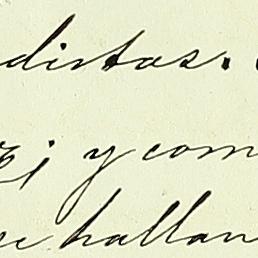 distas.
; y com
se hallan